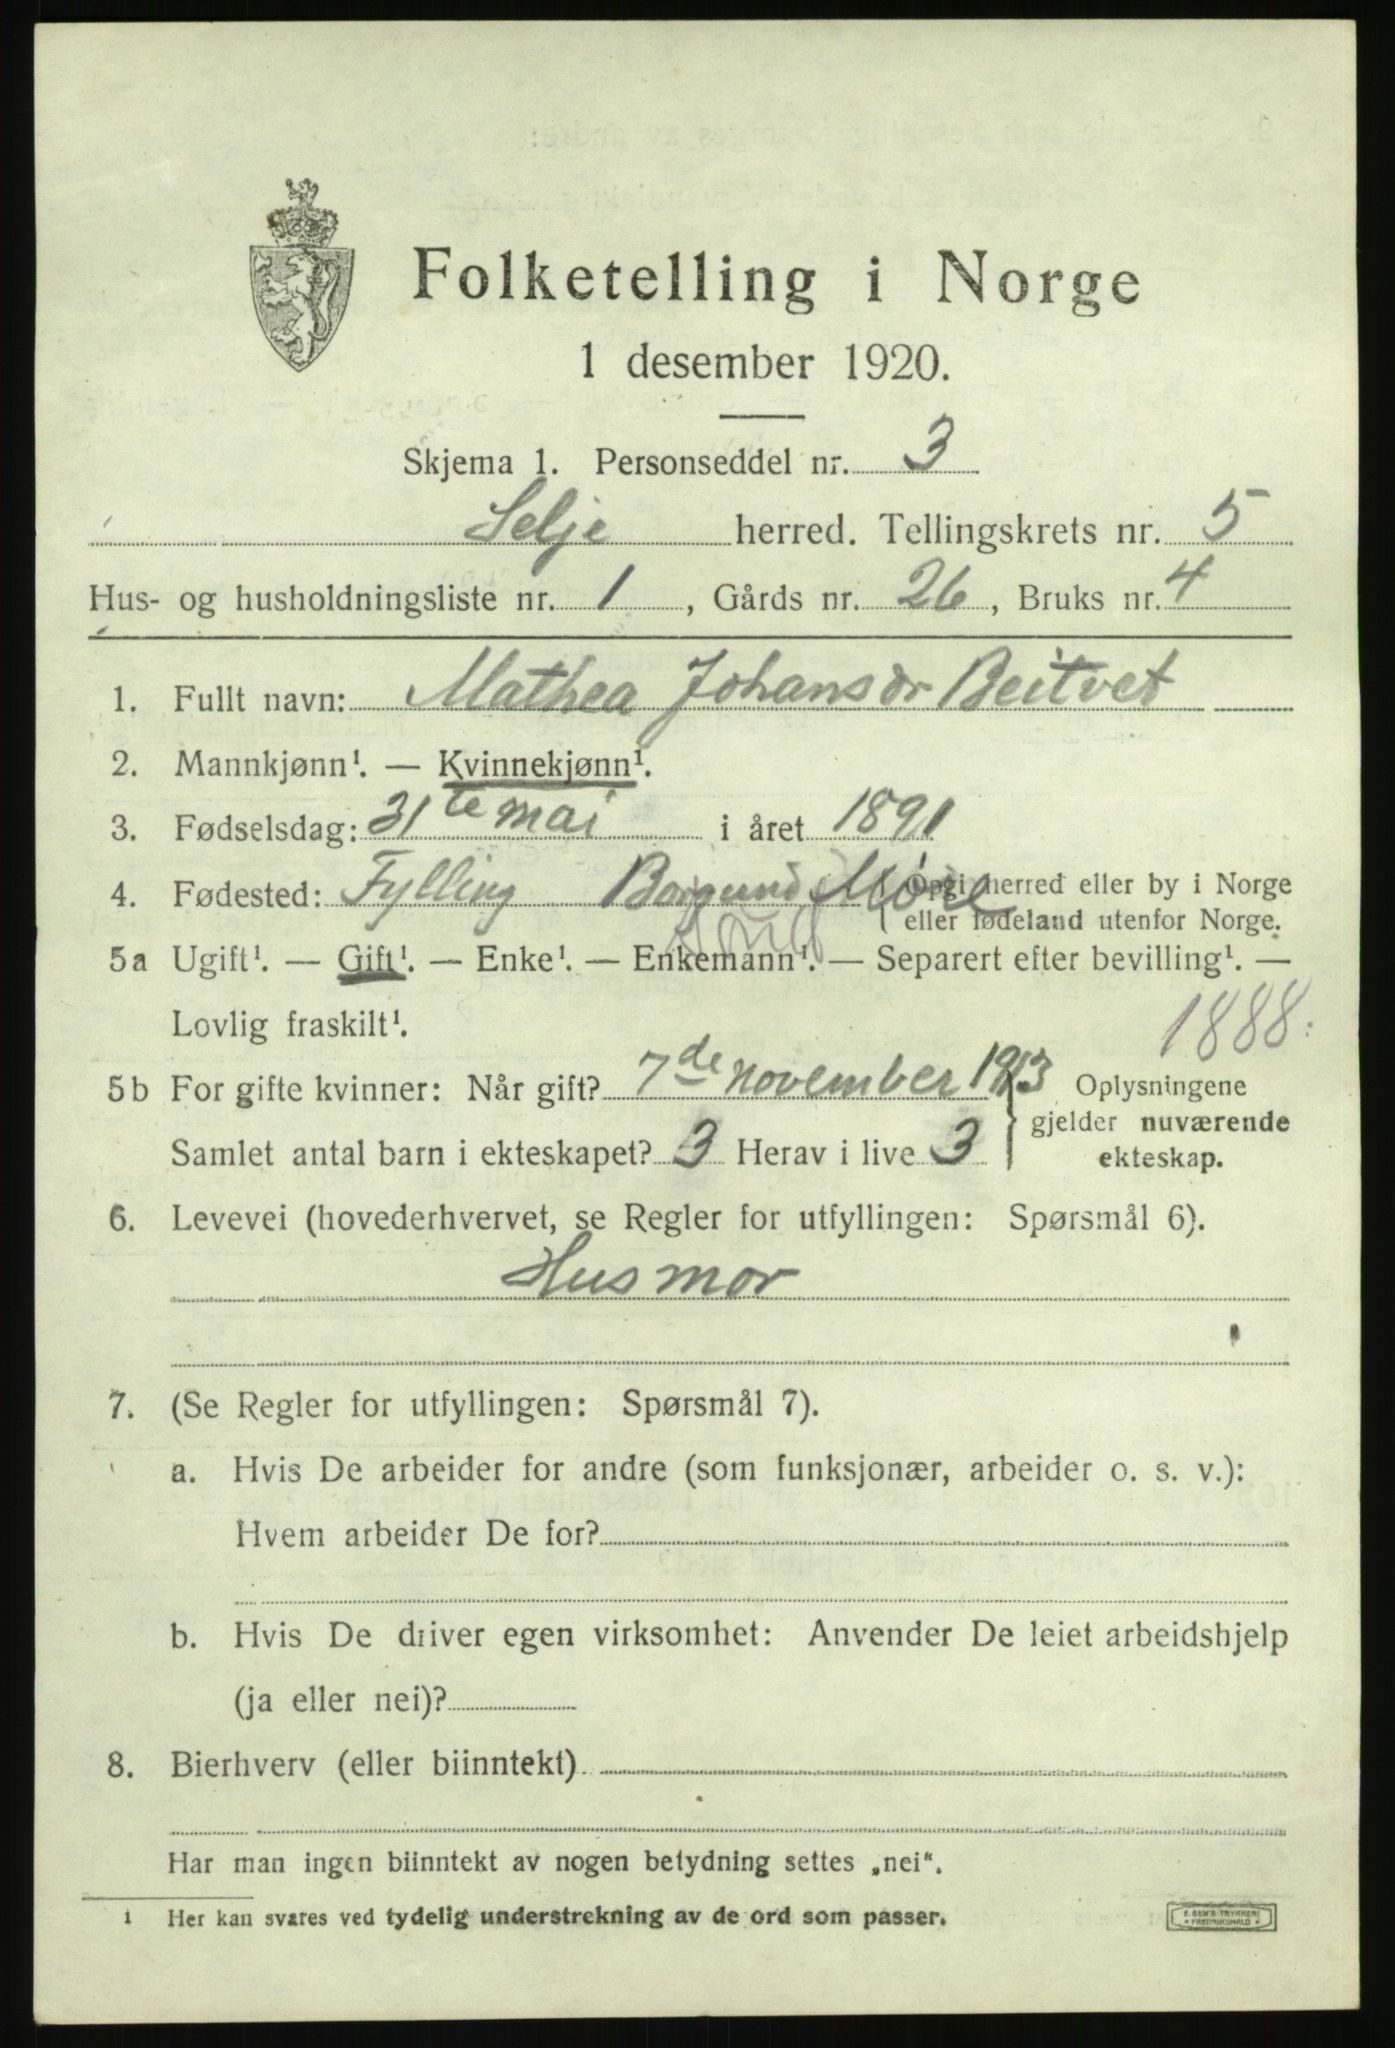 Folketelling i Norge
1 desember 1920.
Skjema 1. Personseddel nr. 3
Selje herred. Tellingskrets nr. 5
Hus- og husholdningsliste nr. 1, Gårds nr. 26, Bruks nr. 4
1. Fullt navn: Mathea Johansdr Beitvet
2. Mannkjønn¹. — Kvinnekjønn¹.
3. Fødselsdag: 31te mai i året 1891
4. Fødested: Fylling Borgund Møre (Opgi herred eller by i Norge
eller fødeland utenfor Norge.
5a Ugift¹. — Gift¹. — Enke¹. — Enkemann¹. — Separert efter bevilling¹. —
Lovlig fraskilt¹.
1888.
5b For gifte kvinner: Når gift? 7de november 1913 Oplysningene
gjelder nuværende
Samlet antal barn i ekteskapet? 3 Herav i live 3 ekteskap.
6. Levevei (hovederhvervet, se Regler for utfyllingen: Spørsmål 6).
Husmor
7. (Se Regler for utfyllingen: Spørsmål 7).
a. Hvis De arbeider for andre (som funksjonær, arbeider o. s. v.):
Hvem arbeider De for?
b. Hvis De driver egen virksomhet: Anvender De leiet arbeidshjelp
(ja eller nei)?
8. Bierhverv (eller biinntekt)
Har man ingen biinntekt av nogen betydning settes „nei“.
¹ Her kan svares ved tydelig understrekning av de ord som passer.
E. SEM'S TRYKKERI
FREDRIKSHALD